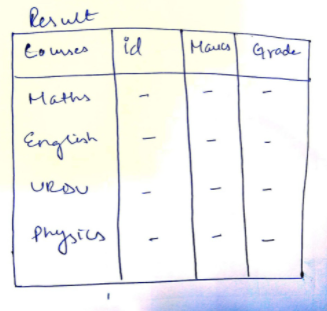 Result
Courses id Marks Grade
Maths - - -
English - - -
URDU - - -
Physics - - -